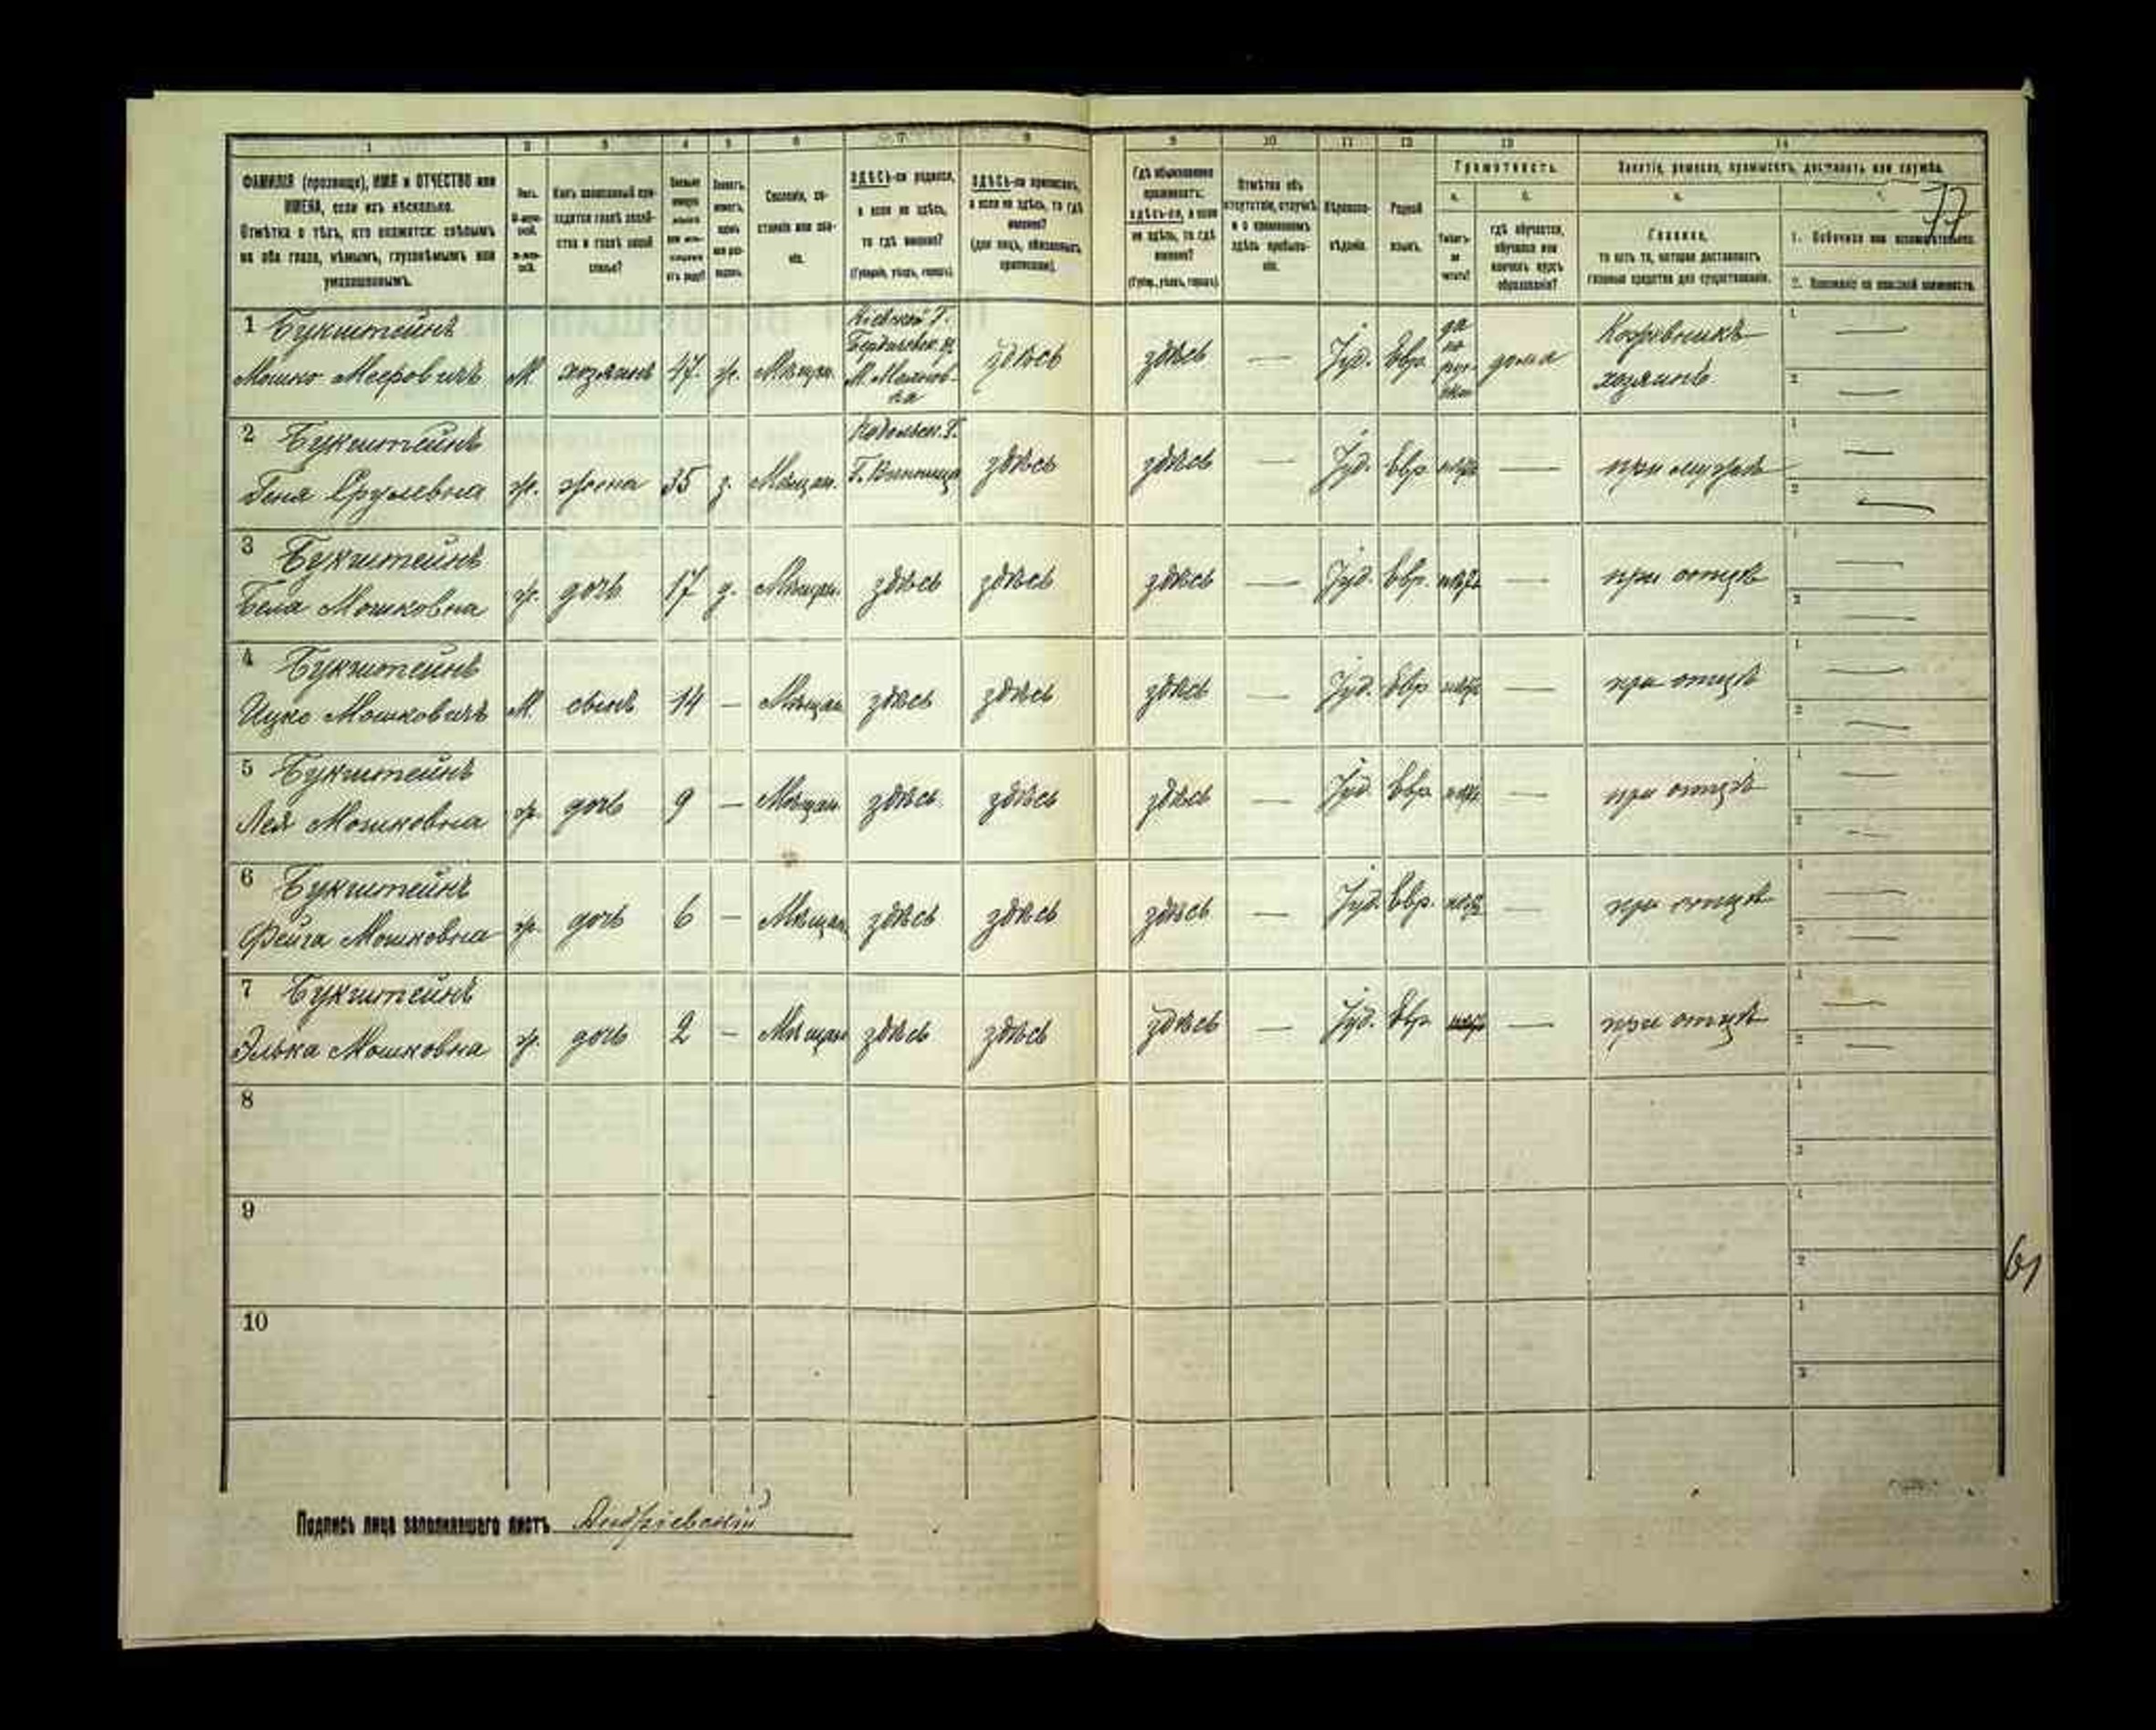 1 2 3 4 5 6 7 8 9 10 11 12 13 14
ФАМИЛІЯ (прозвище), ИМЯ и ОТЧЕСТВО или
ИМЕНА, если ихъ нѣсколько.
Отмѣтка о тѣхъ, кто окажется: слѣпымъ
на оба глаза, нѣмымъ, глухонѣмымъ или
умалишеннымъ.
Полъ.
Какъ записанный при-
ходится главѣ хозяй-
ства и главѣ своей
семьи?
Сословіе, со-
стояніе или зва-
ніе.
ЗДѢСЬ-ли родился,
а если не здѣсь,
то гдѣ именно?
(Губернія, уѣздъ, городъ).
ЗДѢСЬ-ли приписанъ,
а если не здѣсь, то гдѣ
именно?
(для лицъ, обязанныхъ
припискою).
Гдѣ обыкновенно
проживаетъ:
здѣсь-ли, а если
не здѣсь, то гдѣ
именно?
(Губер., уѣздъ, городъ).
Отмѣтка объ
отсутствіи, отлучкѣ
и о временномъ
здѣсь пребыва-
ніи.
Вѣроиспо-
вѣданіе.
Родной
языкъ.
Грамотность.
а. б.
Умѣетъ-
ли
читать?
гдѣ обучается,
обучался или
кончилъ курсъ
образованія?
Занятіе, ремесло, промыселъ, должность или служба.
77
Главное,
то есть то, которое доставляетъ
главныя средства для существованія.
1. Побочное или вспомогательное.
2. Положеніе по воинской повинности.
1 Букштейнъ
Мошко Мееровичъ М. хозяинъ 47. ж. Мѣщан.
Кіевской Г.
Бердичевск. у.
здѣсь здѣсь — Іуд. Евр. да
по
дома
хозяинъ
1 —
2 —
2 Букштейнъ
Геня Срулевна ж. жена 35 з. Мѣщан.
Подольск. Г.
Г. Винница
здѣсь здѣсь — Іуд. Евр. нѣтъ — при мужѣ
1 —
2 —
3 Букштейнъ
Бела Мошковна ж. дочь 17 д. Мѣщан. здѣсь здѣсь здѣсь — Іуд. Евр. нѣтъ — при отцѣ
1 —
2 —
4 Букштейнъ
Ицко Мошковичъ М. сынъ 14 — Мѣщан. здѣсь здѣсь здѣсь — Іуд. Евр нѣтъ — при отцѣ
1 —
2 —
5 Букштейнъ
Лея Мошковна ж. дочь 9 — Мѣщан. здѣсь здѣсь здѣсь — Іуд Евр нѣтъ — при отцѣ
1 —
2 —
6 Букштейнъ
Фейга Мошковна ж. дочь 6 — Мѣщан. здѣсь здѣсь здѣсь — Іуд. Евр. нѣтъ — при отцѣ
1 —
2 —
7 Букштейнъ
Элька Мошковна ж. дочь 2 — Мѣщан здѣсь здѣсь здѣсь — Іуд. Евр нѣтъ — при отцѣ
1 —
2 —
8
1
2
9
1
2
61
10
1
2
Подпись лица заполнявшаго листъ